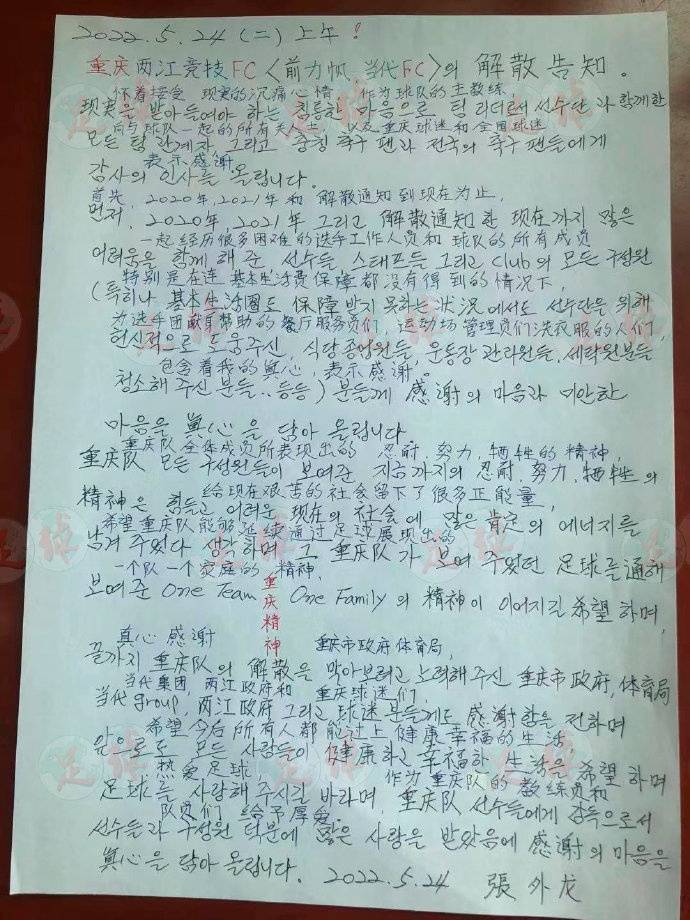 2022.5.24 (二) 上午!
重庆 两江竞技FC〈前力帆, 当代FC〉의 解散告知。
怀着接受 现实的沉痛心情 作为球队的主教练,
현실을 받아들여야 하는 침통한 마음으로, 팀 리더로서 선수단과 함께한
向与球队一起的所有关人士 以及重庆球迷和全国球迷
모든 팀 관계자, 그리고 충칭 축구 팬과 전국의 축구 팬들에게
表示感谢
감사의 인사를 올립니다.
首先, 2020年, 2021年 和 解散通知到现在为止,
먼저, 2020年, 2021年 그리고 解散通知한 现在까지 많은
一起经历很多困难的选手工作人员和球队的所有成员
어려움을 함께 해준 선수들, 스태프들 그리고 Club의 모든 구성원
特别是在连 基本生活费保障都没有得到的情况下,
(특히나 基本生活圈도 保障 받지 못하는 状况에서도 선수단을 위해
为选手团献身帮助的餐厅服务员们, 运动场 管理员们洗衣服的人们,
헌신적으로 도움주신, 식당종업원들, 운동장 관리원들, 세탁원분들
包含着我的真心, 表示感谢。
청소해 주신 분들..등등) 분들께 感谢의 마음과 미안한
마음을 真心을 담아 올립니다
重庆队 全体成员所表现出的 忍耐, 努力, 牺牲的精神,
重庆队 모든 구성원들이 보여준 지금까지의 忍耐, 努力, 牺牲의
给现在艰苦的社会留下了很多正能量,
精神은 힘들고 어려운 现在의 社会에 많은 肯定의 에너지를
希望重庆队能够延续通过足球展现出的
남겨 주었다 생각하며 그 重庆队가 보여 주었던 足球를 通해
一个队一个家庭的 精神,
보여준 One Team One Family의 精神이 이어지길 希望하며,
重庆精神
真心 感谢 重庆市政府体育局,
끝까지 重庆队의 解散은 막아보려고 노력해 주신 重庆市 政府, 体育局
当代集团, 两江政府和 重庆球迷们,
当代 group, 两江政府 그리고 球迷 분들께도 感谢함을 전하며
希望今后所有人都能过上 健康 幸福的生活
앞으로도 모든 사람들이 健康하고 幸福한 生活을 希望하며
热爱足球 作为重庆队的教练员和
足球를 사랑해 주시길 바라며 重庆队 선수들에게 감독으로서
队员们 给予厚爱。
선수들과 구성원 덕분에 많은 사랑을 받았음에 感谢의 마음을
真心을 담아 올립니다. 2022.5.24 張外龙